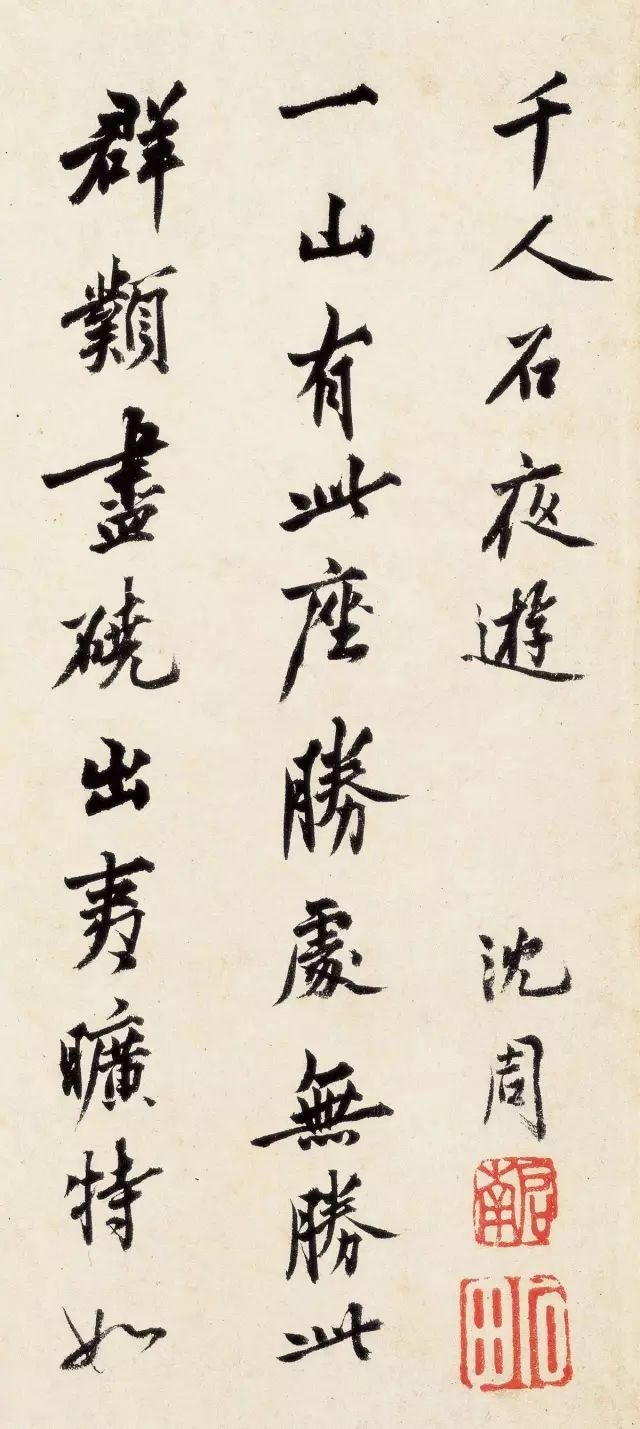 千人石夜遊 沈周
啟南
石田
一山有此座勝處無勝此
群類盡磽出夷曠特如